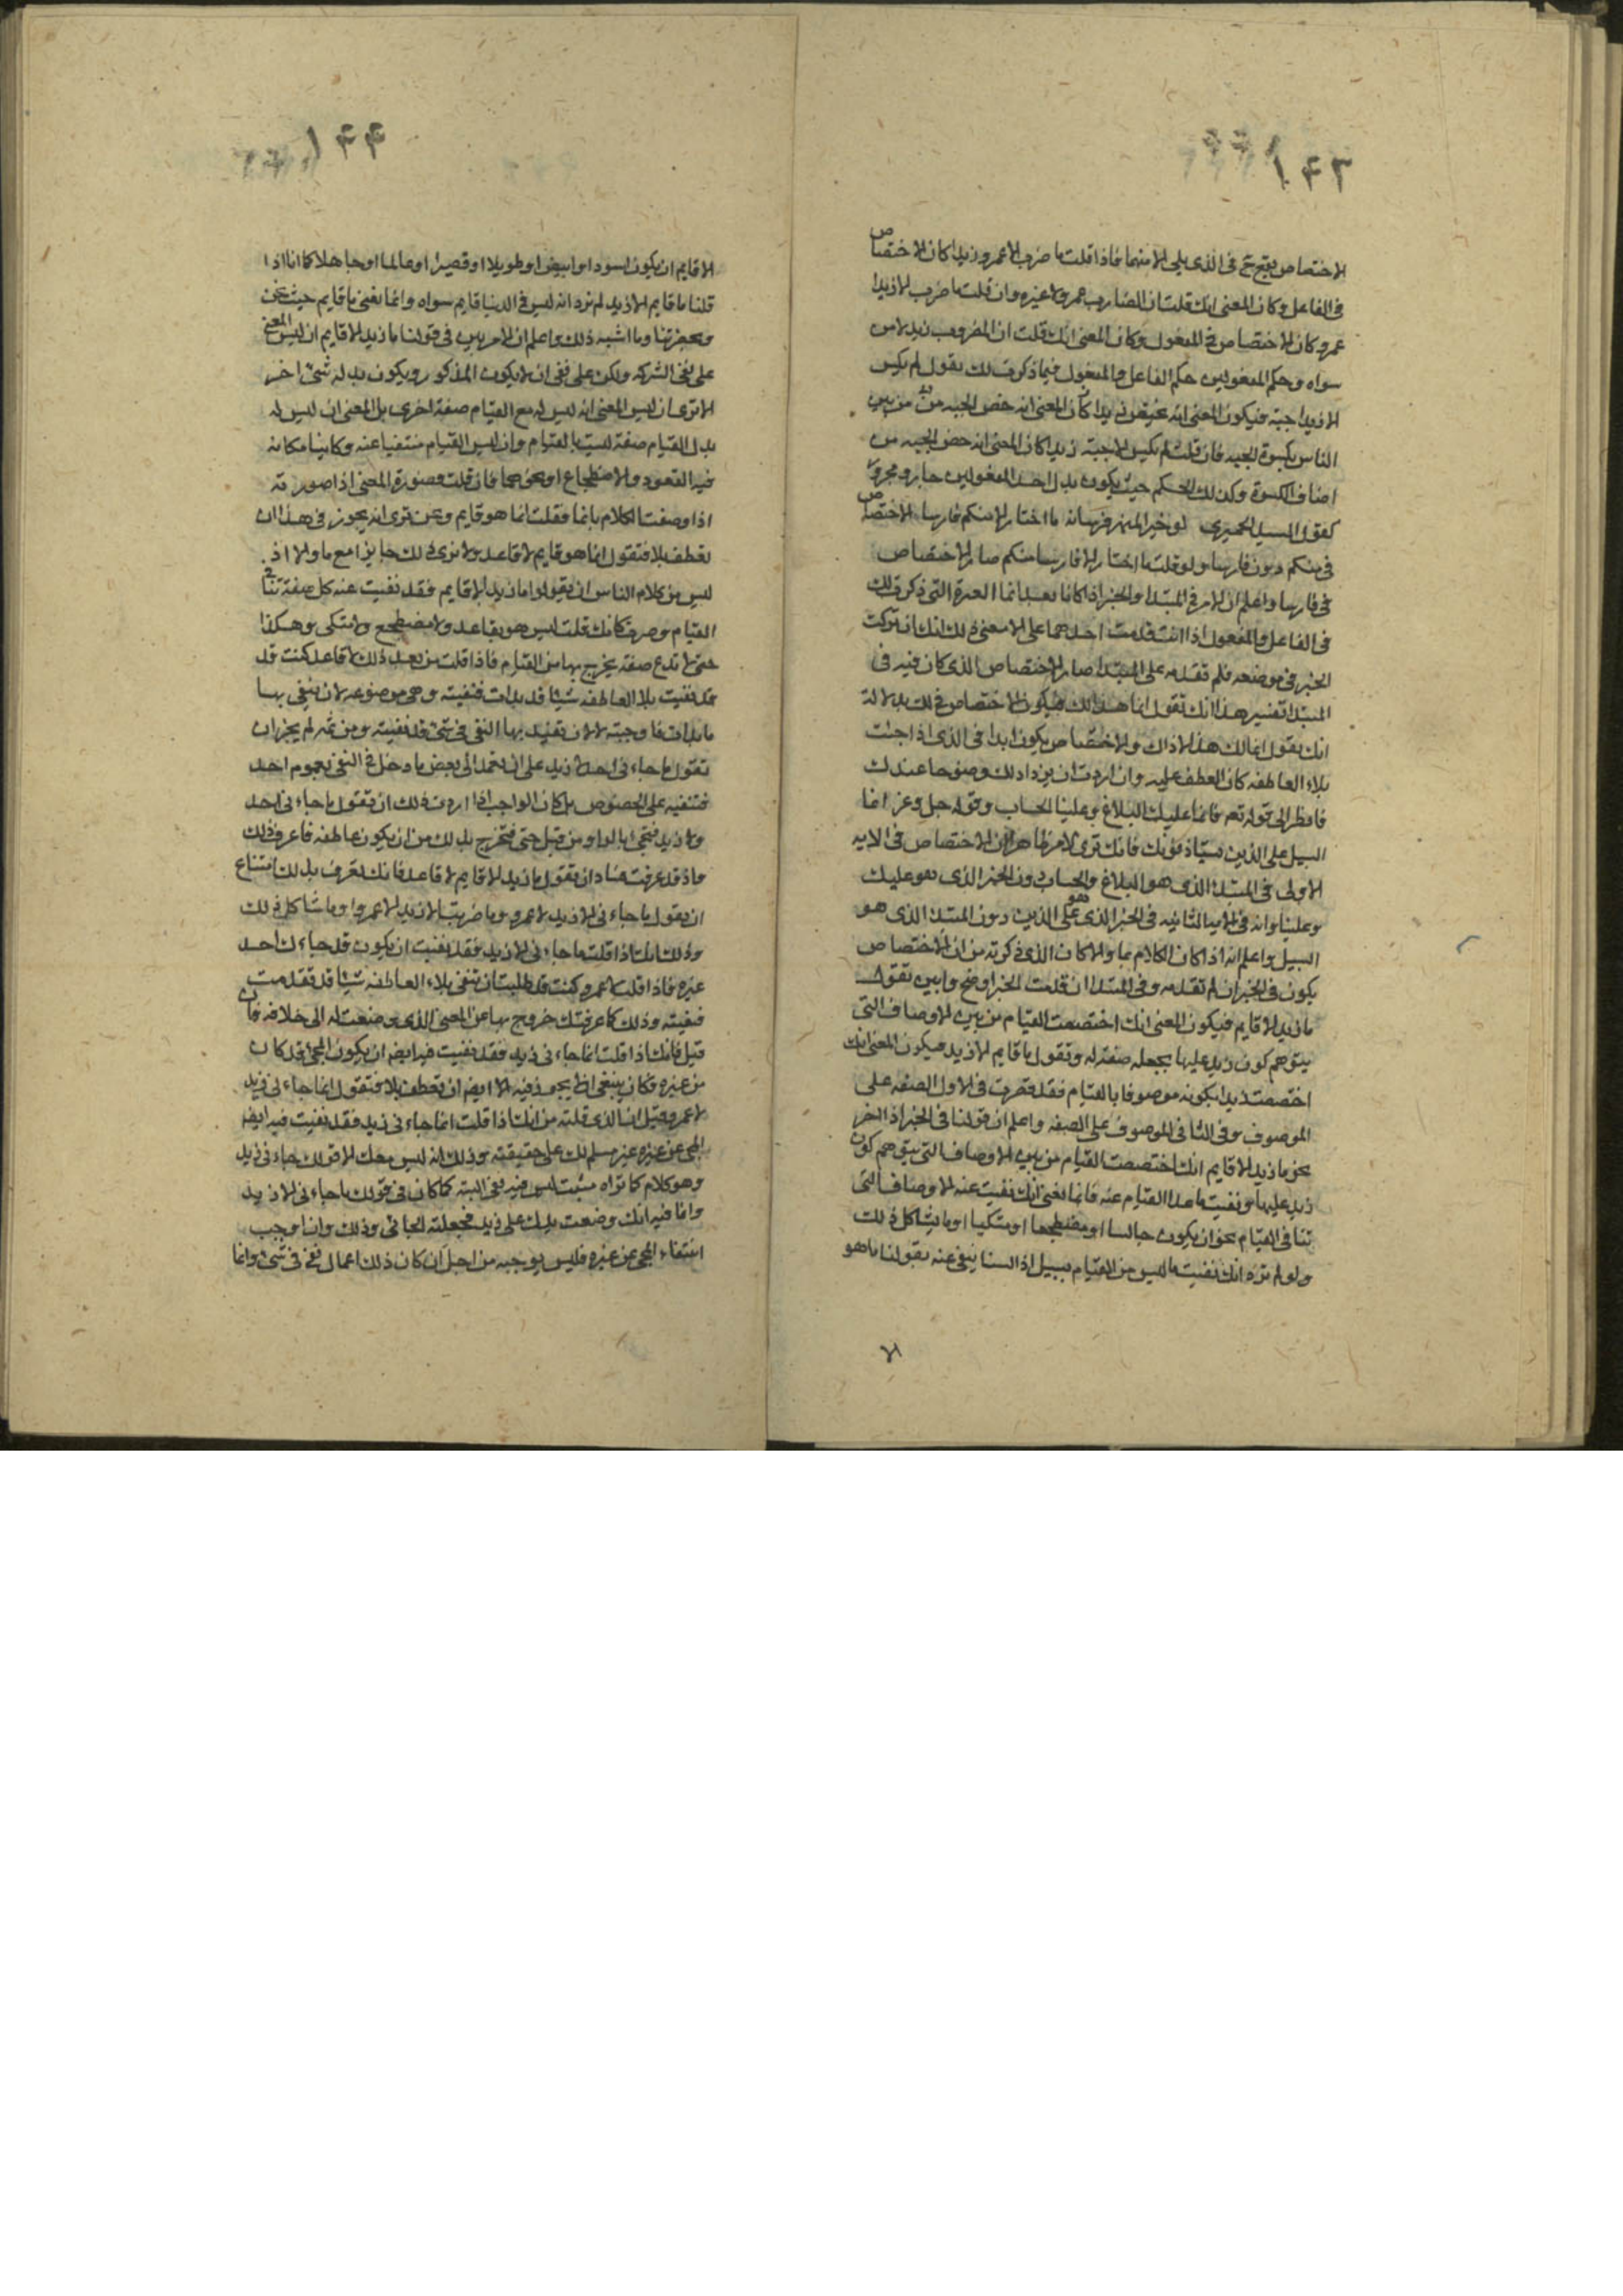 ١٤٣
الاختصاص يقع ح فى الذى يلى الا منهما فاذا قلت ما ضرب الا عمرو زيدا كان الاختصاص
فى الفاعل وكان المعنى انك قلت ان الضارب عمرو لا غيره وان قلت ما ضرب الا زيدا
عمرو كان الاختصاص فى المفعول وكان المعنى انك قلت ان المضروب زيد لا من
سواه وحكم المفعولين حكم الفاعل والمفعول فيما ذكرت لك تقول لم يكس
الا زيدا جبة فيكون المعنى انه خص زيدا كان المعنى انه خص الجبه من بين
الناس بكسوة الجبه فان قلت لم يكس الا جبة زيدا كان المعنى انه خص الجبه من
اصناف الكسوة وكذلك الحكم حيث يكون بدل احد المفعولين جار ومجرور
كقول السيد الحميرى لو خير المنبر فرسانه ما اختار الا منكم فارسا الاختصاص
فى منكم دون فارسا ولو قلت ما اختار الا فارسا منكم صار الاختصاص
فى فارسا واعلم ان الامر فى المبتدا والخبر اذا كانا بعد انما العبرة التى ذكرت لك
فى الفاعل والمفعول اذا انت قدمت احدهما على الا معنى ذلك انك ان تركت
الخبر فى موضعه فلم تقدمه على المبتدا صار الاختصاص الذى كان فيه فى
المبتدا تفسير هذا انك تقول انما هذا لك فيكون الاختصاص فى لك بدلالة
انك تقول انما لك هذا لا ذاك والاختصاص يكون ابدا فى الذى اذا جئت
بلاء العاطفه كان العطف عليه وان اردت ان يزداد لك وضوحا عندك
فانظر الى قوله تعم فانما عليك البلاغ وعلينا الحساب وقوله جل وعز انما
السبيل على الذين يستاذنونك فانك ترى الامر ظاهرا ان الاختصاص فى الايه
الاولى فى المبتدا الذى هو البلاغ والحساب دون الخبر الذى هو عليك
وعلينا وانه فى الايه الثانيه فى الخبر الذى هو على الذين دون المبتدا الذى هو
السبيل واعلم انه اذا كان الكلام بما والا كان الذى ذكرته من ان الاختصاص
يكون فى الخبر ان لم تقدمه وفى المبتدا ان قدمت الخبر اوضح وابين تقول
ما زيد الا قايم فيكون المعنى انك اختصصت القيام من بين الاوصاف التى
يتوهم كون زيد عليها بجعله صفة له وتقول ما قايم الا زيد فيكون المعنى انك
اختصصت زيدا بكونه موصوفا بالقيام فقد قصرت فى الاول الصفه على
الموصوف وفى الثانى الموصوف على الصفه واعلم ان قولنا فى الخبر اذا اخر
نحو ما زيد الا قايم انك اختصصت القيام من بين الاوصاف التى يتوهم كون
زيد عليها ونفيت ما عدا القيام عنه فانما نعنى انك نفيت عنه الاوصاف التى
تنافى القيام نحو ان يكون جالسا او مضطجعا او متكيا او ما يشاكل ذلك
ولو لم ترد انك نفيت ما ليس من القيام بسبيل اذ السنا ينفى عنه بقولنا ما هو
الا
١٤٤
الا قايم ان يكون اسود او ابيض او طويلا او قصيرا او عالما او جاهلا كما انا اذا
قلنا ما قايم الا زيد لم نرد انه ليس فى الدنيا قايم سواه وانما نعنى ما قايم حيث نحن
وبحضرتنا وما اشبه ذلك واعلم ان الامر بين فى قولنا ما زيد الا قايم ان ليس المعنى
على نفى الشركه ولكن على نفى ان لا يكون المذكور ويكون بدله شئ اخر
الا ترى ان ليس المعنى انه ليس له مع القيام صفة اخرى بل المعنى ان ليس له
بدل القيام صفة ليست بالقيام وان ليس القيام منتفيا عنه وكاينا مكانه
فيه القعود والاضطجاع او نحوهما فان قلت فصورة المعنى اذا صورته
اذا وصفت الكلام بانما فقلت انما هو قايم ونحن نرى انه يجوز فى هذا ان
نعطف بلا فتقول انما هو قايم لا قاعد ولا نرى ذلك جايزا مع ما والا اذ
ليس من كلام الناس ان يقولوا ما زيد الا قايم فقد نفيت عنه كل صفة تنافى
القيام وصرت كانك قلت ليس هو بقاعد ولا مضطجع ولا متكى وهكذا
حتى لا تدع صفة يخرج بها من القيام فاذا قلت من بعد ذلك لا قاعد كنت قد
قد نفيت بلا العاطفه شيئا قد بدات فنفيته وهى موضوعه لان تنفى بها
ما بدات فاوجبته لا لان تفيد بها النفى فى شئ قد نفيته ومن ثم لم يجز ان
تقول ما جاءنى احد لا زيد على ان تعمد الى بعض ما دخل فى النفى بعموم احد
فتنفيه على الخصوص بل كان الواجب اذا اردت ذلك ان تقول ما جاءنى احد
ولا زيد فتجئ بالواو من قبل حتى تخرج بذلك من ان يكون عاطفه فاعرف ذلك
واذ قد عرفت فساد ان تقول ما زيد الا قايم لا قاعد فانك تعرف بذلك امتناع
ان تقول ما جاءنى الا زيد لا عمرو وما ضربت الا زيدا لا عمروا وما شاكل ذلك
وذلك انك اذا قلت ما جاءنى الا زيد فقد نفيت ان يكون قد جاءك احد
غيره فاذا قلت لا عمرو كنت قد طلبت ان تنفى بلاء العاطفه شيئا قد تقدمت
فنفيته وذلك كما عرفتك خروج بها عن المعنى الذى وضعت له الى خلافه فان
قيل فانك اذا قلت انما جاءنى زيد فقد نفيت فيه ايضه ان يكون المجئ قد كان
من غيره فكان ينبغى ان لا يجوز فيه الا ايضه ان تعطف بلا فتقول انما جاءنى زيد
لا عمرو قيل ان الذى قلته من انك اذا قلت انما جاءنى زيد فقد نفيت فيه ايضه
المجئ عن غيره غير مسلم لك على حقيقته وذلك انه ليس معك الا قولك جاءنى زيد
وهو كلام كما تراه مثبت ليس فيه نفى البته كما كان فى قولك ما جاءنى الا زيد
وانما فيه انك وضعت يدك على زيد فجعلته الجائى وذلك وان اوجب
انتفاء المجئ عن غيره فليس يوجبه من اجل ان كان ذلك اعمال نفى فى شئ وانما